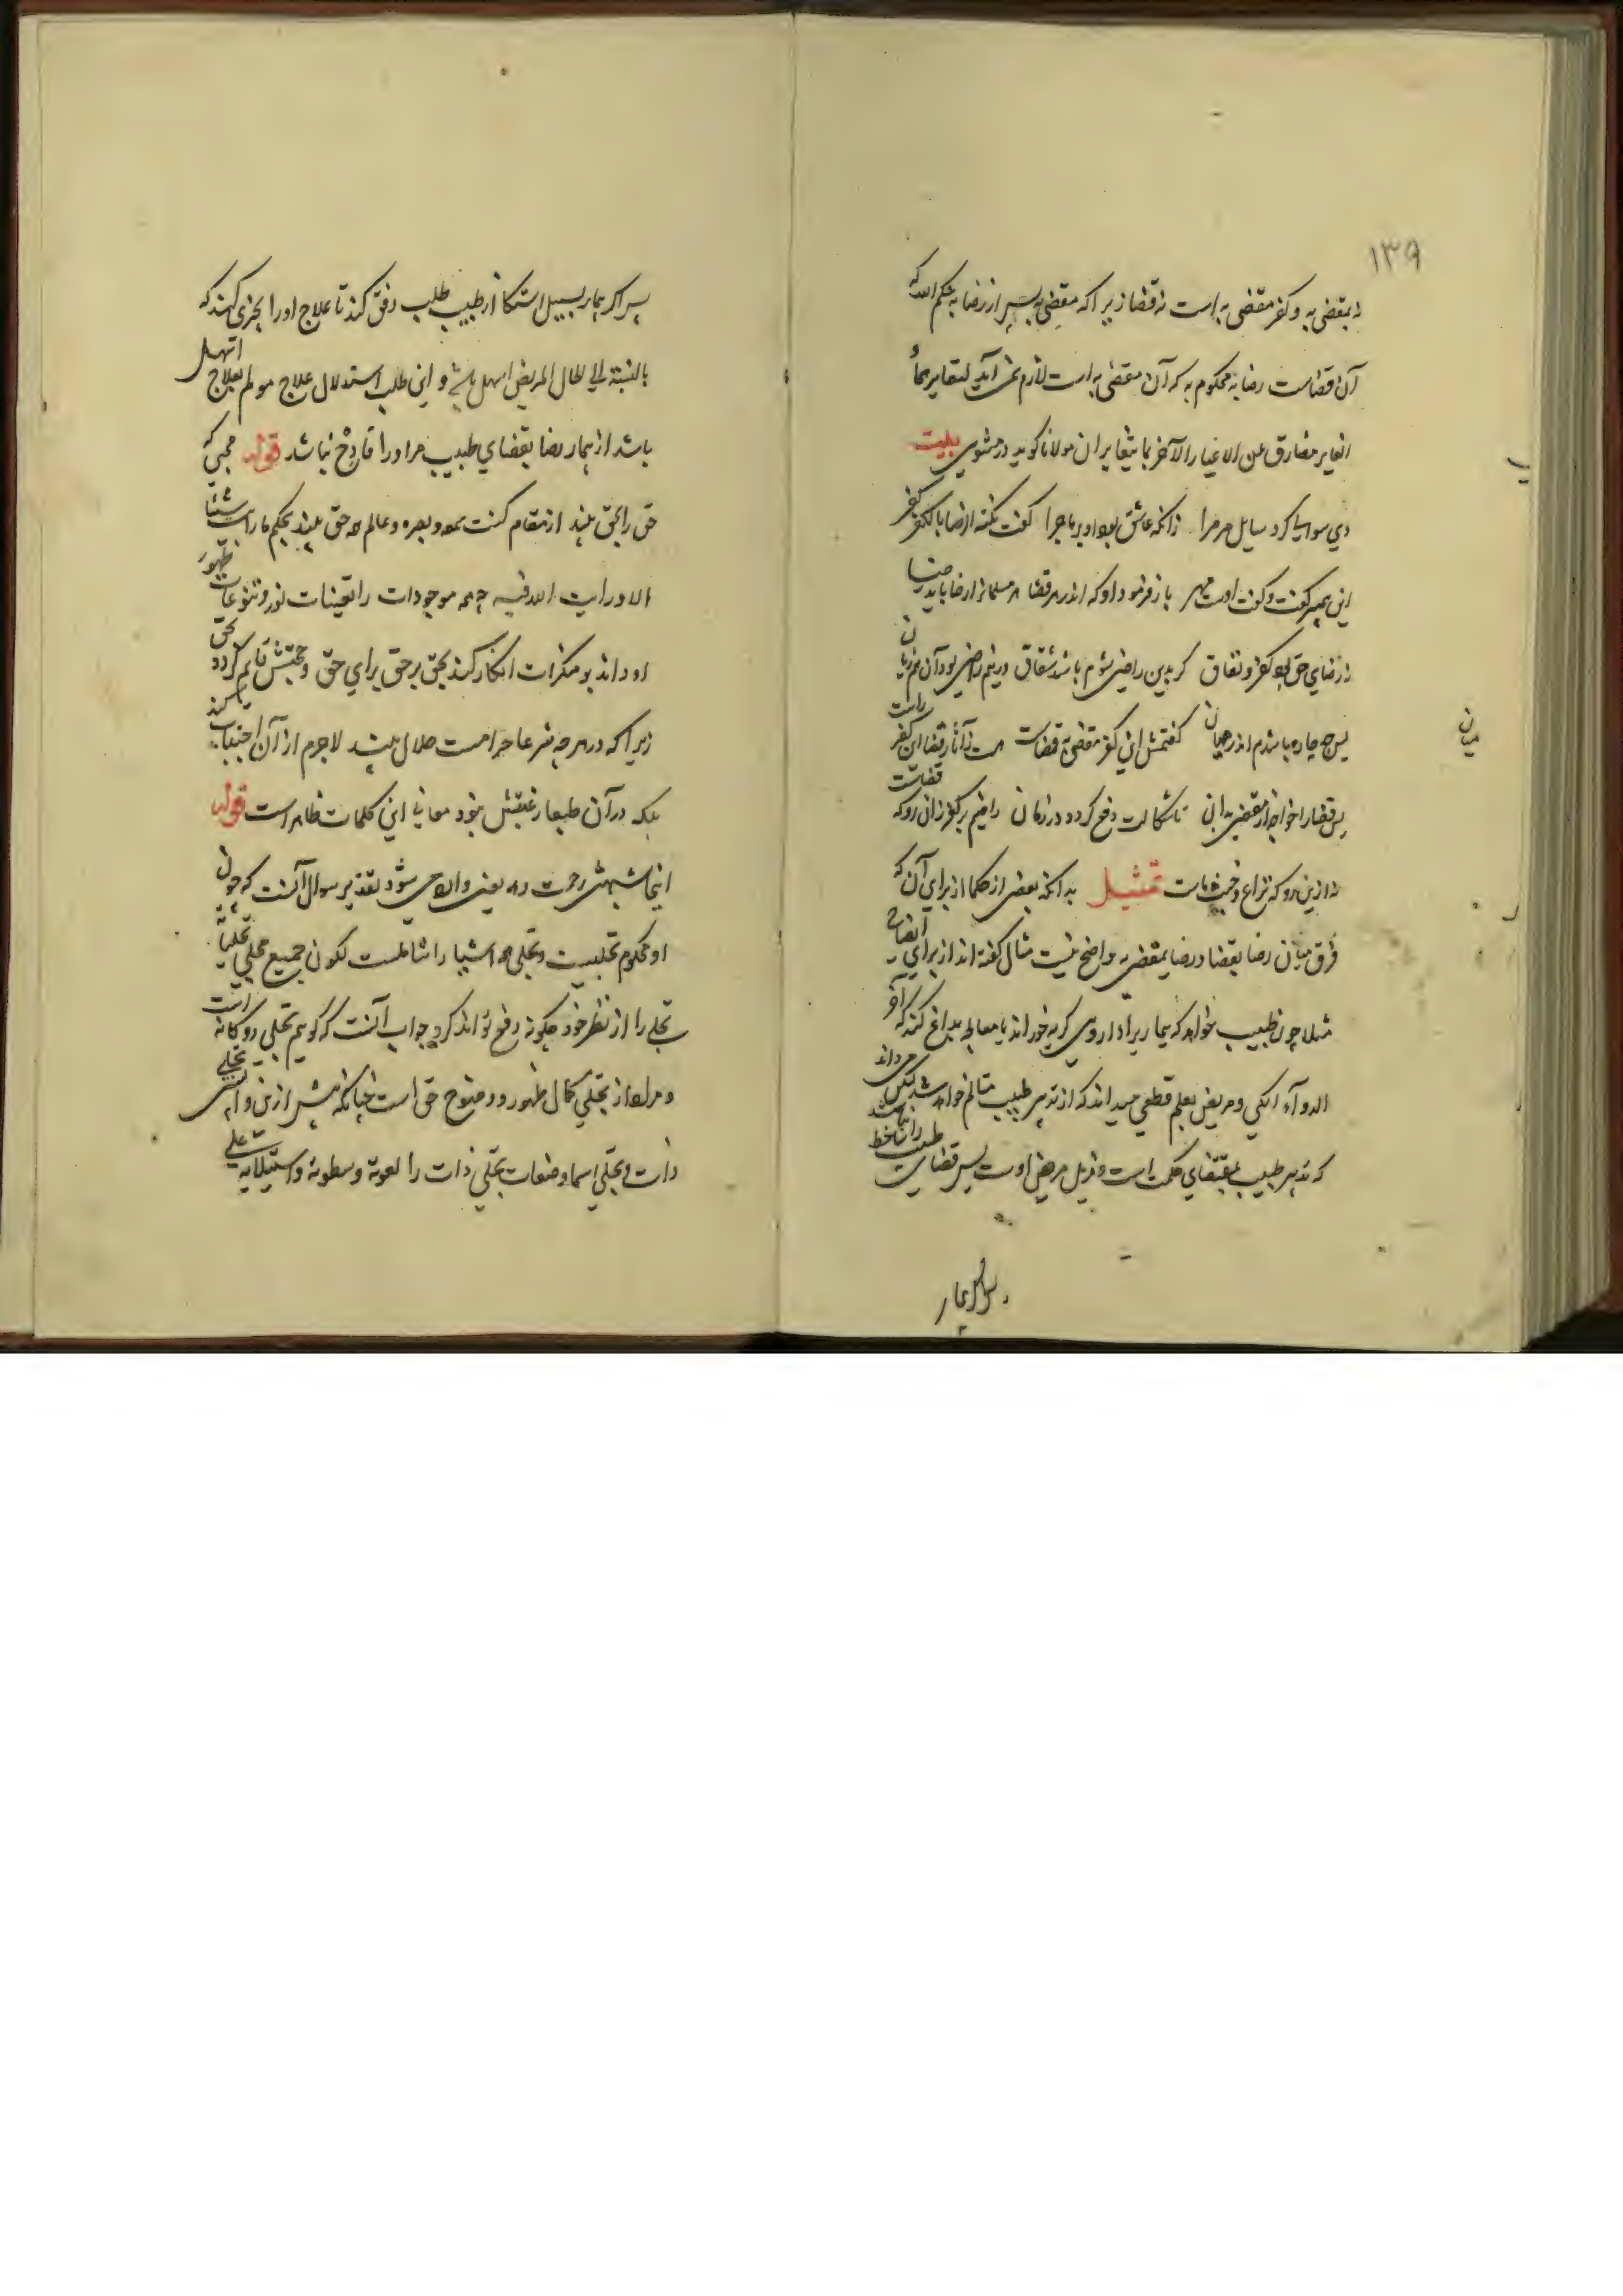 ۱۳۹
نه بمقضی به و کفر مقضی به است نه قضا زیرا که مقضی به پس از رضا به حکم الله که
آن قضاست رضا به محکوم به که آن مقضی به است لازم نمی آید لتغایرهما
مولانا گوید در مثنوی بیت
دی سوالی کرد سایل مر مرا زانکه عاشق بود او بر ماجرا گفت نکته الرضا بالکفر کفر
این پیمبر گفت و گفت اوست مهر باز فرمود او که اندر هر قضا مر مسلمانرا رضا باید رضا
نه قضای حق بود کفر و نفاق گر بدین راضی شوم باشد شقاق ور نیم راضی بود آن هم زیان
پس چه چاره باشدم اندر میان گفتمش این کفر مقضی نه قضاست هست آثار قضا این کفر راست
پس قضا را خواجه از مقضی بدان تا شکالت دفع گردد در زمان راضیم بر کفر زان رو که قضاست
نه ازین رو که نزاع و خبث ماست تمثیل بدانکه بعضی از حکما از برای آن که
فرق میان رضا بقضا و رضا بمقضی به واضح نیست مثال گفته اند از برای ایضاح
مثلا چون طبیب خواهد که بیمار را داروی کریه خوراند یا معالجه بداغ کند که آخر
الدوآء الکی و مریض بعلم قطعی میداند که از تدبیر طبیب متالم خواهد شد لیکن می داند
که تدبیر طبیب بمقتضای حکمت است و مزیل مرض اوست پس قضای طبیب را
پس اگر بیمار
میان
پس اگر بیمار بسبیل استکا از طبیب طلب رفق کند تا علاج او را بچیزی کند که
بالنسبة الی حال المریض اسهل باشد و این طلب استدلال علاج مولم بعلاج اسهل
باشد از بیمار رضا بقضای طبیب مر او را قادح نباشد قوله محبی که
حق را بحق بیند از مقام کنت سمعه و بصره و عالم همه حق بیند بحکم ما رایت شیئا
الا و رایت الله فیه همه موجودات را تعینات نور و تنوعات ظهور
او داند بر منکرات انکار کند بحق بر حق برای حق و حجتش قایم گردد بحق
زیرا که در هر چه شرعا حرامست جلال بیند لاجرم از آن اجتناب نماید
بلکه در آن طبعا رغبتش نبود معانی این کلمات ظاهر است قوله
اینجا شبهتی زحمت دهد یعنی وارد می شود تقدیر سوال آنست که چون
او محکوم تجلیست و تجلی همه اشیا را شاملست لکون جمیع مجلی تجلیاته
تجلی را از نظر خود چگونه دفع تواند کرد جواب آنست که گوییم تجلی دوگانه است
و مراد از تجلی کمال ظهور و وضوح حق است چنانکه پیش ازین دانستی تجلی
ذات و تجلی اسما و صفات تجلی ذات را لقوته و سطوته و استیلایه علی